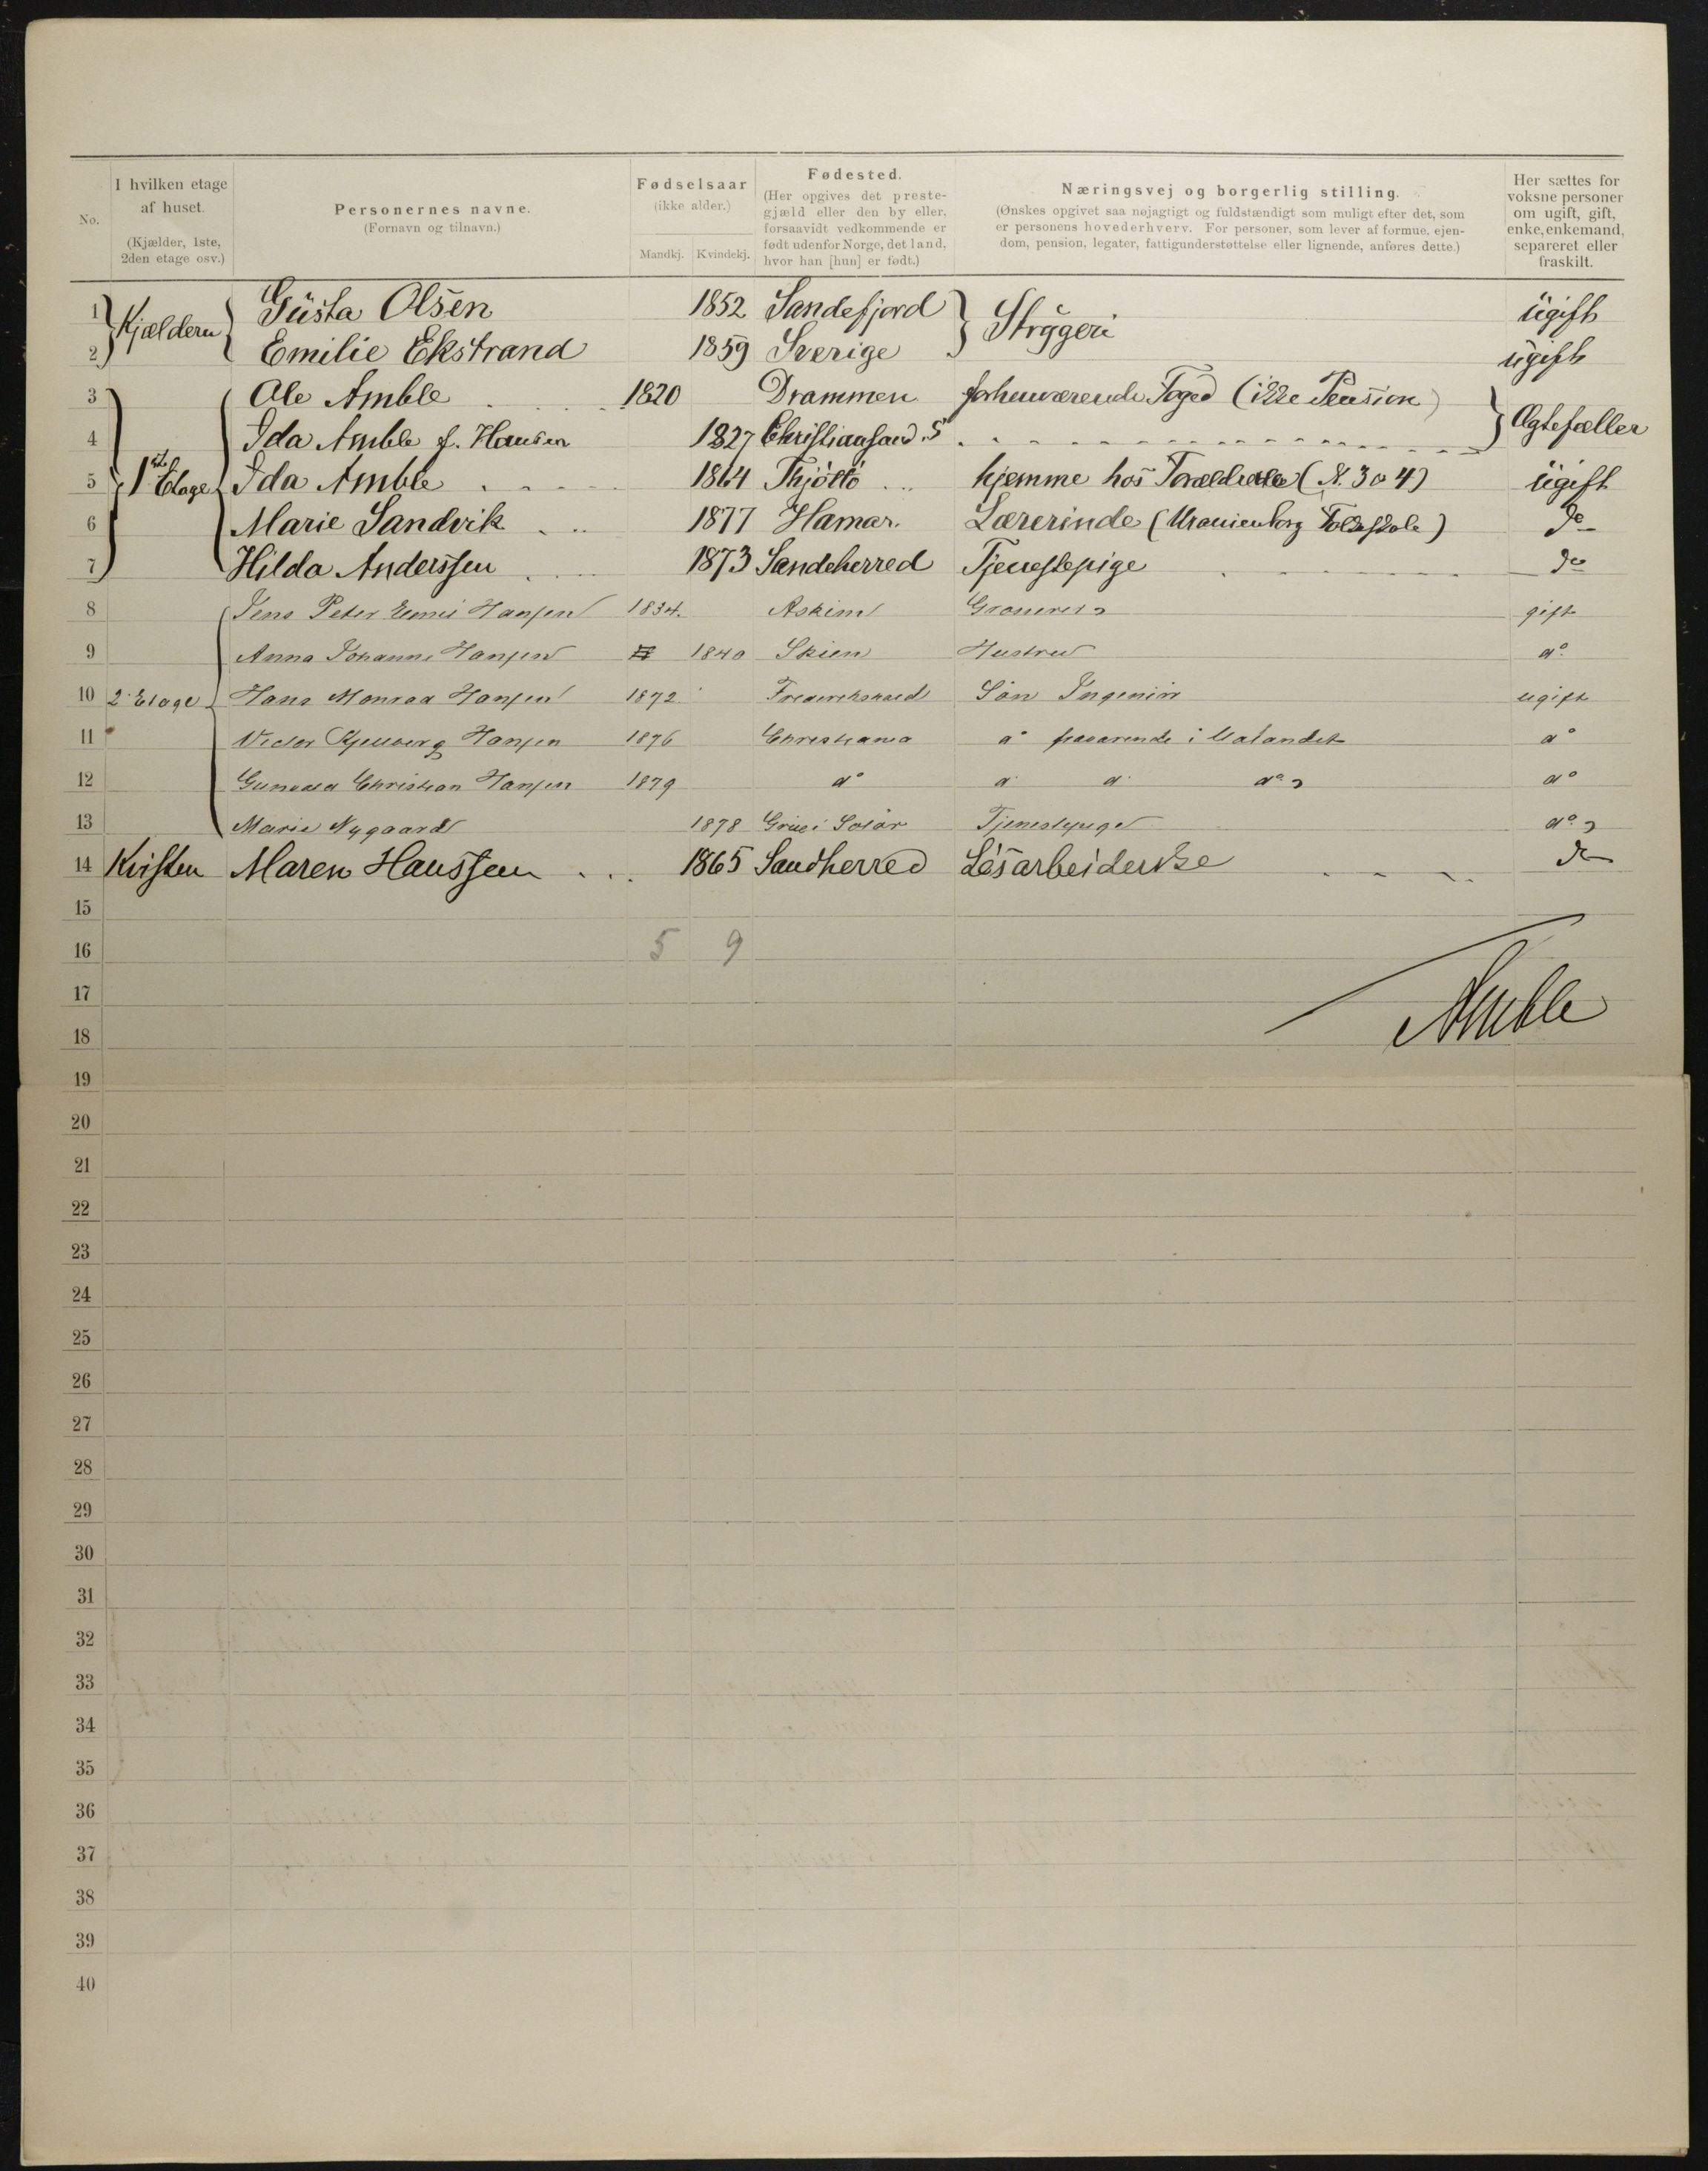 No.
I hvilken etage af huset.
(Kjælder, 1ste, 2den etage osv.)
Personernes navne.
(Fornavn og tilnavn.)
Fødselsaar
(ikke alder.)
Mandkj. Kvindekj.
Fødested.
(Her opgives det preste-
gjæld eller den by eller,
forsaavidt vedkommende er
født udenfor Norge, det land,
hvor han [hun] er født.)
Næringsvej og borgerlig stilling.
(Ønskes opgivet saa nøjagtigt og fuldstændigt som muligt efter det, som
er personens hovederhverv. For personer, som lever af formue, ejen-
dom, pension, legater, fattigunderstøttelse eller lignende, anføres dette.)
Her sættes for
voksne personer
om ugift, gift,
enke, enkemand,
separeret eller
fraskilt.
1 Kjælderen Gusta Olsen 1852 Sandefjord Strygeri ugift
2 Emilie Ekstrand 1859 Sverige ugift
3 Ole Amble 1820 Drammen forhenværende Foged (ikke Pension) Ægtefæller
4 Ida Amble f. Hansen 1827 Christiansand S
5 1ste Etage Ida Amble 1864 Thjøttø hjemme hos Forældrene (N. 3 o 4) ugift
6 Marie Sandvik 1877 Hamar. Lærerinde (Uranienborg Folkeskole) do
7 Hilda Anderssen 1873 Sandeherred Tjenestepige do
8 Jens Peter Hansen 1834. Askim Grosserer gift
9 Anna Johanne Hansen 1840 Skien Hustru do
10 2 Etage Hans Monrad Hansen 1872 Frederikshald Søn Ingeniør ugift
11 Victor Hansen 1876 Christiania do fraværende i Udlandet do
12 Christian Hansen 1879 do d d do do
13 Marie Nygaard 1878 Grue i Solør Tjenestepige do
14 Kvisten Maren Hanssen 1865 Sandherred Løsarbeiderske do
15
16 5 9
17 Amble
18
19
20
21
22
23
24
25
26
27
28
29
30
31
32
33
34
35
36
37
38
39
40